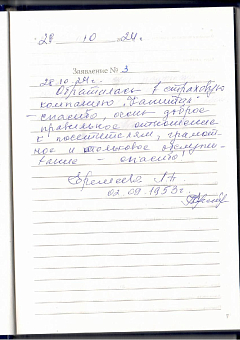 28 10 24 г.
Заявление № 3
28.10.24 г.
Обратилась в страховую
компанию
спасибо, очень доброе
правильное отношение
к посетителям, грамот
ное и толковое обслужи
вание – спасибо,
02.09.1953 г.
7